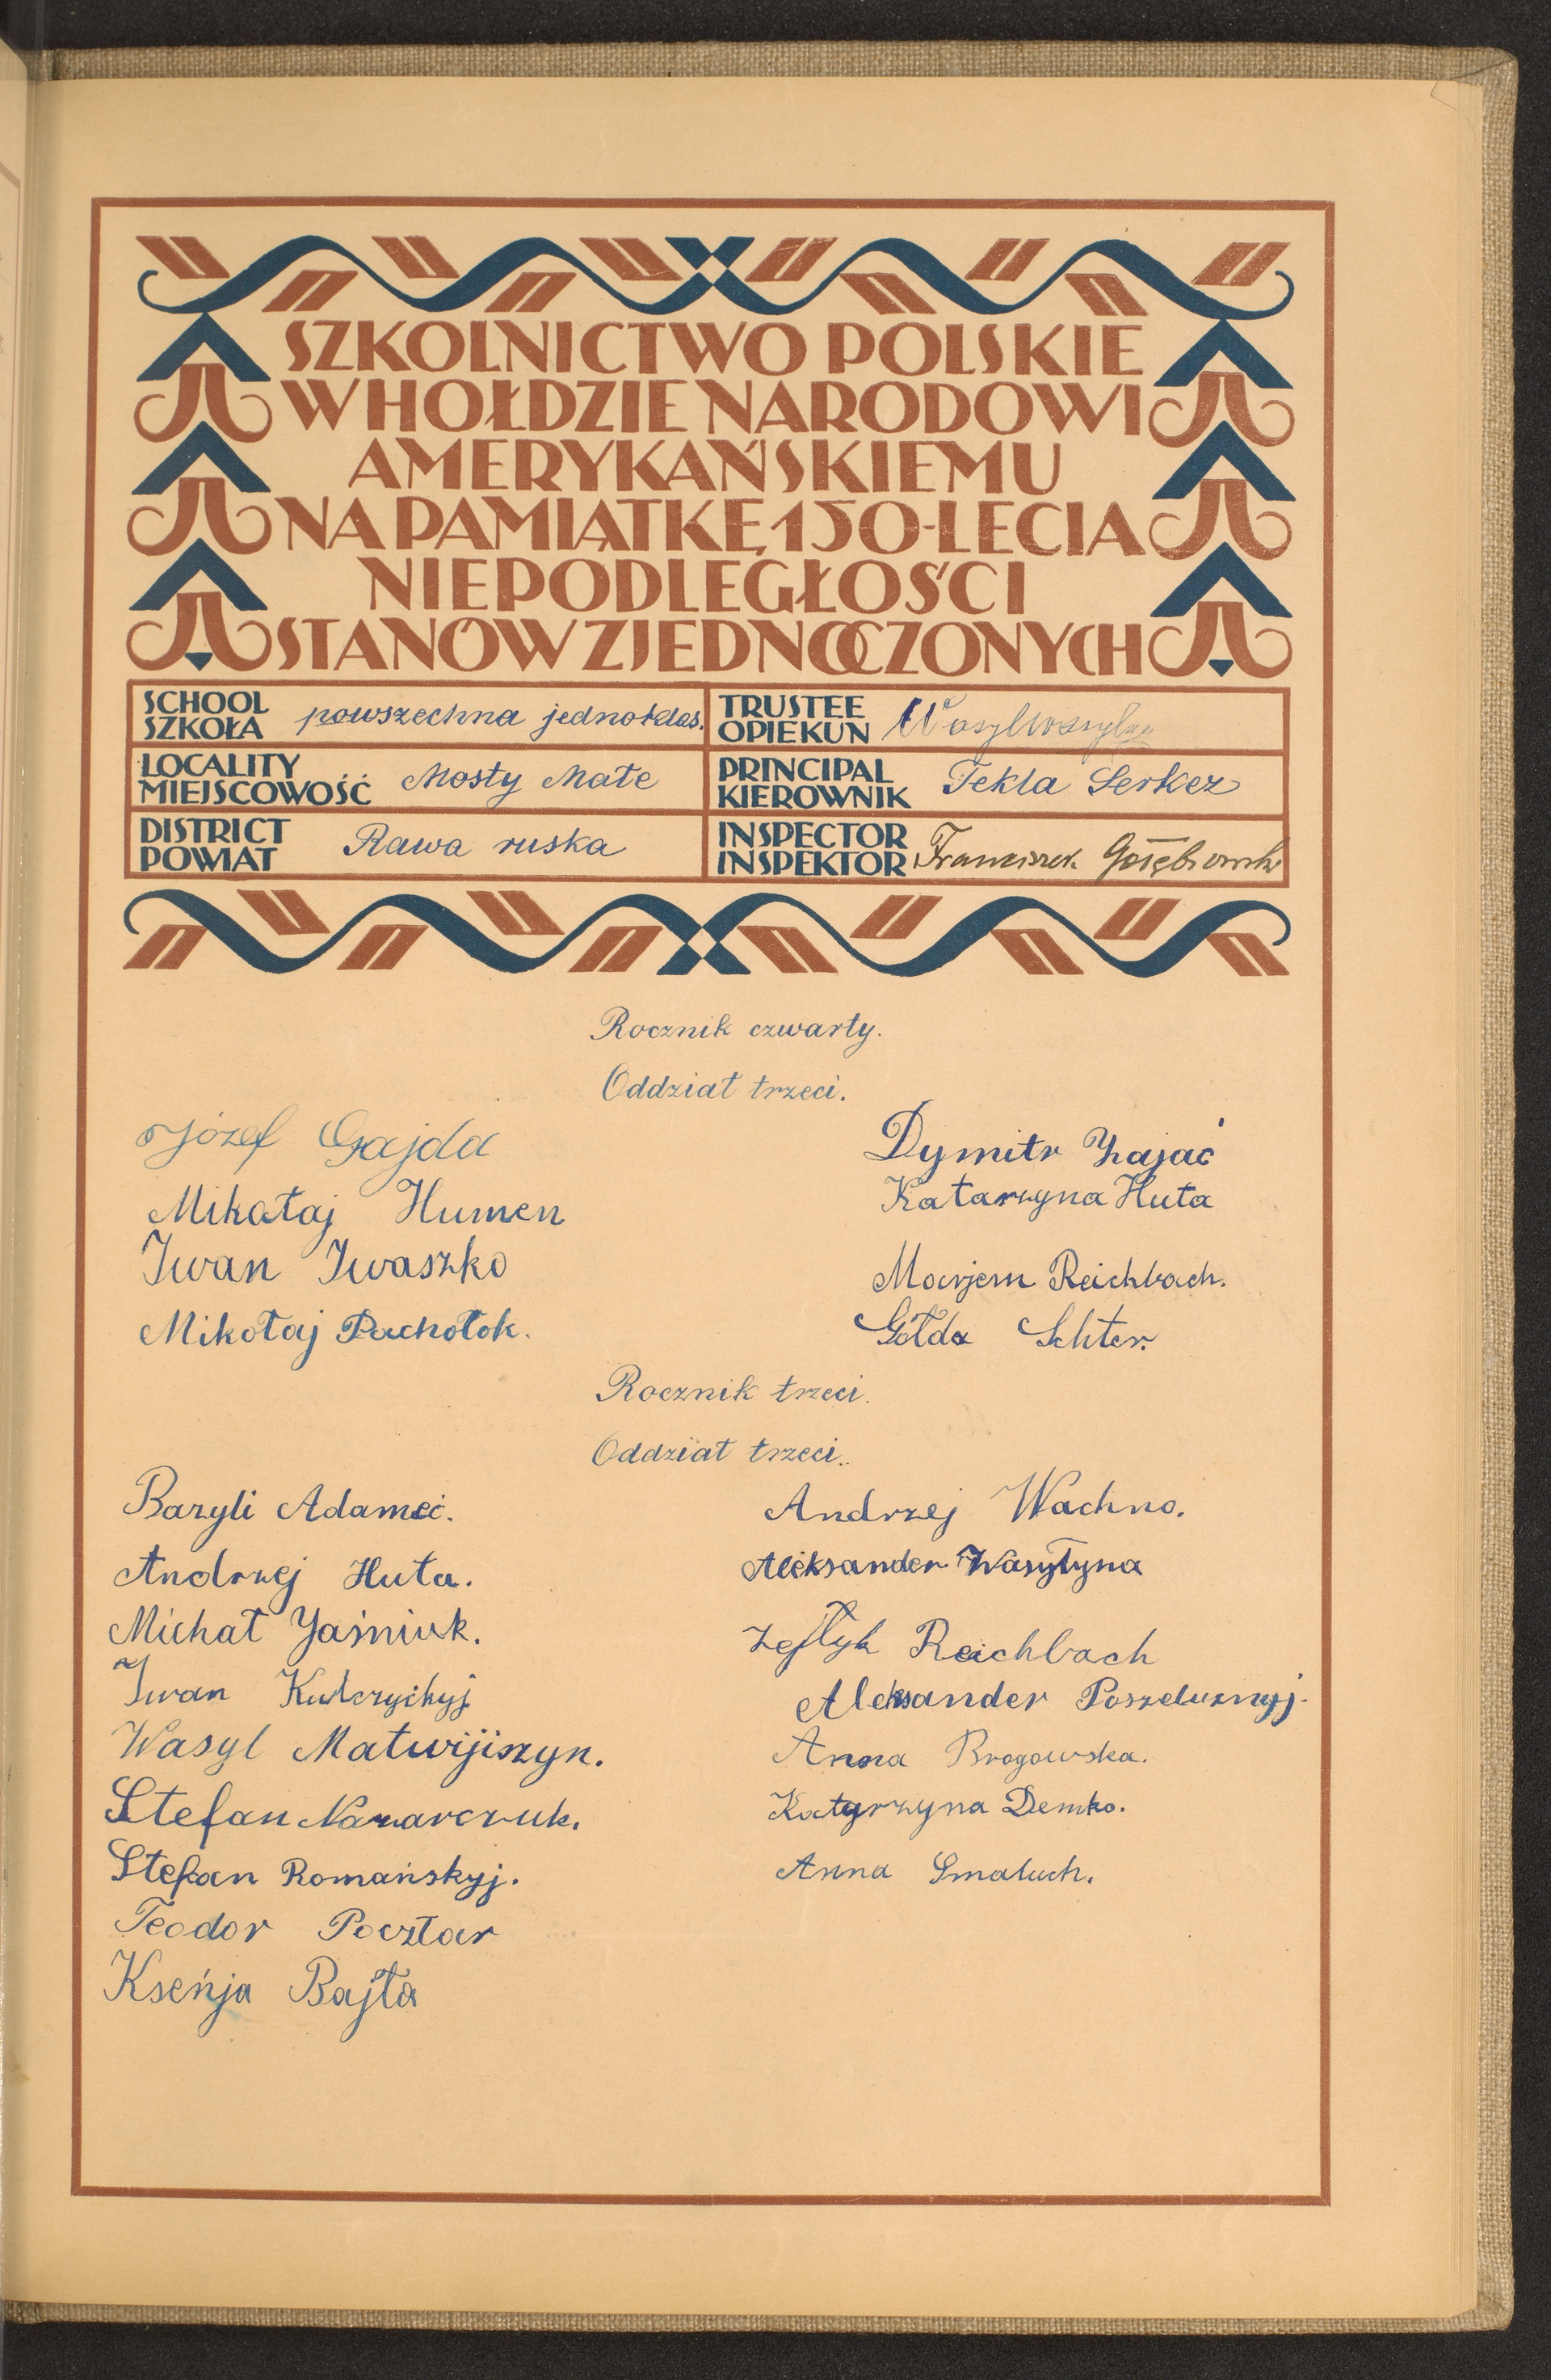 SZKOLNICTWO POLSKIE
W HOŁDZIE NARODOWI
AMERYKAŃSKIEMU
NA PAMIĄTKĘ 150-LECIA
NIEPODLEGŁOŚCI
STANÓW ZJEDNOCZONYCH
SCHOOL
SZKOŁA powszechna jednoklas.
TRUSTEE
OPIEKUN Wasyl
LOCALITY
MIEJSCOWOŚĆ Mosty Małe
PRINCIPAL
KIEROWNIK Tekla Serkez
DISTRICT
POWIAT Rawa ruska
INSPECTOR
INSPEKTOR Franciszek Gołębiowski
Rocznik czwarty.
Oddział trzeci.
Józef Gajda
Mikałaj Humen
Iwan Iwaszko
Mikołaj Pachołok.
Dymitr Zająć
Katarzyna Huta
Marjem Reichbach.
Gołda Schter.
Rocznik trzeci.
Oddział trzeci.
Bazyli Adameć.
Andrzej Huta.
Michał Jaśniuk.
Iwan Kulczyckyj
Wasyl Matwijiszyn.
Stefan Nazarczuk.
Stefan Romańskyj.
Teodor Pocztar
Kseńja Bajła
Andrzej Wachno.
Aleksander Wasyłyna
Zeflyk Reichbach
Aleksander Poszeluznyj.
Anna Brogowska.
Katarzyna Demko.
Anna Smaluch.